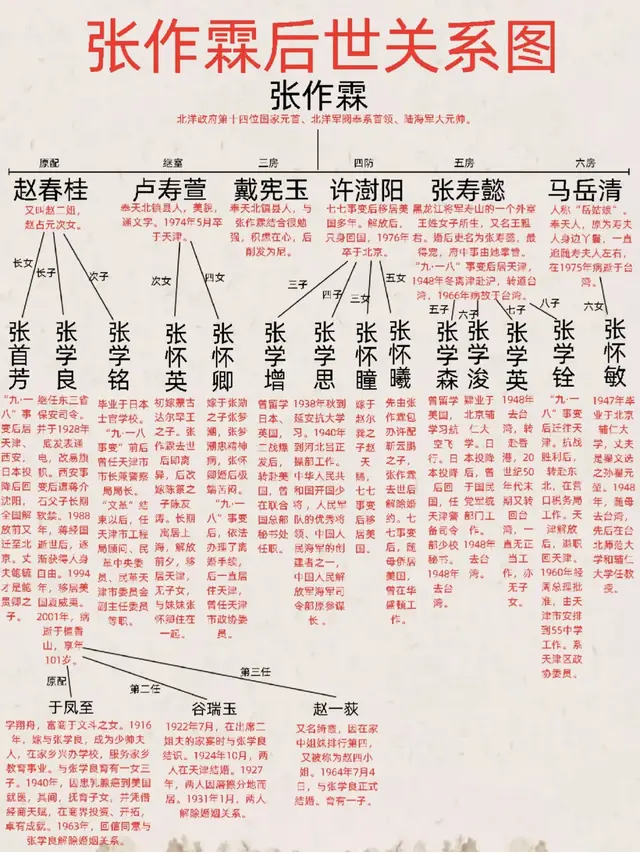 张作霖后世关系图
张作霖
北洋政府第十四位国家元首、北洋军阀奉系首领、陆海军大元帅。
原配
继室
三房
四防
五房
六房
赵春桂
又叫赵二姐，
赵占元次女。
卢寿萱
奉天北镇县人，美貌，
通文学。1974年5月卒
于天津。
戴宪玉
奉天北镇县人，与
张作霖结合很勉
强，积虑在心，后
削发为尼。
许澍阳
七七事变后移居美
国多年。解放后，
只身回国，1976年
卒于北京。
张寿懿
黑龙江将军寿山的一个外室
王姓女子所生，又名王雅
君。婚后更名为张寿懿，最
得宠，府中事由她掌管。
“九·一八”事变后居天津，
1948年冬离津赴沪，转道台
湾，1966年病故于台湾。
马岳清
人称“岳姑娘”。
奉天人，原为寿夫
人身边丫鬟，一直
追随寿夫人左右，
在1975年病逝于台
湾。
长女
长子
次子
次女
四女
三子
四子
三女
五女
五子
六子
七子
八子
六女
张首芳
张学良
张学铭
张怀英
张怀卿
张学增
张学思
张怀瞳
张怀曦
张学森
张学浚
张学英
张学铨
张怀敏
“九·一
八”事
变后居
天津、
西安，
日本投
降后回
沈阳，
全国解
放前又
迁至北
京。丈
夫能毓
才是能
贵卿之
子。
继任东三省
保安司令。
并于1928年
底发表通
电，改易旗
帜。西安事
变后遭蒋介
石父子长期
软禁。1988
年，蒋经国
逝世后，逐
渐获得人身
自由。1994
年，移居美
国夏威夷。
2001年，病
逝于檀香
山，享年
101岁。
毕业于日本
士官学校。
“九·一八
事变”前后
曾任天津市
市长兼警察
局局长。
“文革”结
束以后，任
天津市工程
局顾问、民
革中央委
员、民革天
津市委员会
副主任委员
等职。
初嫁蒙古
达尔罕王
之子。张
作霖去世
后即离
异，后改
嫁陈篆之
子陈友
涛。长期
寓居上
海，解放
前夕，移
居天津，
无子女，
与妹妹张
怀卿住在
一起。
嫁于张勋
之子张梦
潮，张梦
潮患精神
病，张怀
卿婚后极
端苦闷。
“九·一
八”事变
后，依法
办理了离
婚手续，
后一直居
住天津，
曾任天津
市政协委
员。
曾留学
日本、
英国，
二战爆
发后，
转赴美
国，曾
在联合
国总部
秘书处
任职。
1938年秋到
延安抗大学
习。1940年
到河北吕正
操部工作。
中华人民共
和国开国少
将，人民军
队的优秀将
领、中国人
民海军的创
建者之一，
中国人民解
放军海军司
令部原参谋
长。
嫁于
赵尔
巽之
子赵
天
赐，
七七
事变
后移
居美
国。
先由张
作霖包
办许配
靳云鹏
之子，
张作霖
去世后
解除婚
约。七
七事变
后，随
母侨居
美国，
曾在华
盛顿工
作。
曾留学
美国，
学习航
空飞
行。日
本投降
后回
国，任
天津警
备司令
部少校
秘书。
1948年
去台
湾。
肄业于
北京辅
仁大
学。日
本投降
后，任
国民
党军统
部门工
作。
1948年
去台
湾。
1948年
去台
湾，转
赴香
港。20
世纪50
年代末
期又转
回台
湾，一
直无正
当工
作，亦
无子
女。
“九·一
八”事变
后迁往天
津。抗战
胜利后，
转赴东
北，在营
口税务局
工作。天
津解放
后，退职
回天津。
1960年经
周总理批
准，由天
津市安排
到55中学
工作。系
天津区政
协委员。
1947年毕
业于北京
辅仁大
学，丈夫
是翟文选
之孙翟元
堃。1948
年，随母
去台湾，
先后在台
北师范大
学和辅仁
大学任教
授。
原配
第二任
第三任
于凤至
字翔舟，富商于文斗之女。1916
年，嫁与张学良，成为少帅夫
人，在家乡兴办学校，服务家乡
教育事业。与张学良育有一女三
子。1940年，因患乳腺癌到美国
就医，其间，抚育子女，并凭借
经商天赋，在商界投资、开拓，
卓有成就。1963年，回信同意与
张学良解除婚姻关系。
谷瑞玉
1922年7月，在出席二
姐夫的家宴时与张学良
结识。1924年10月，两
人在天津结婚。1927
年，两人因磨擦分地而
居。1931年1月，两人
解除婚姻关系。
赵一荻
又名绮霞，因在家
中姐妹排行第四，
又被称为赵四小
姐。1964年7月4
日，与张学良正式
结婚。育有一子。